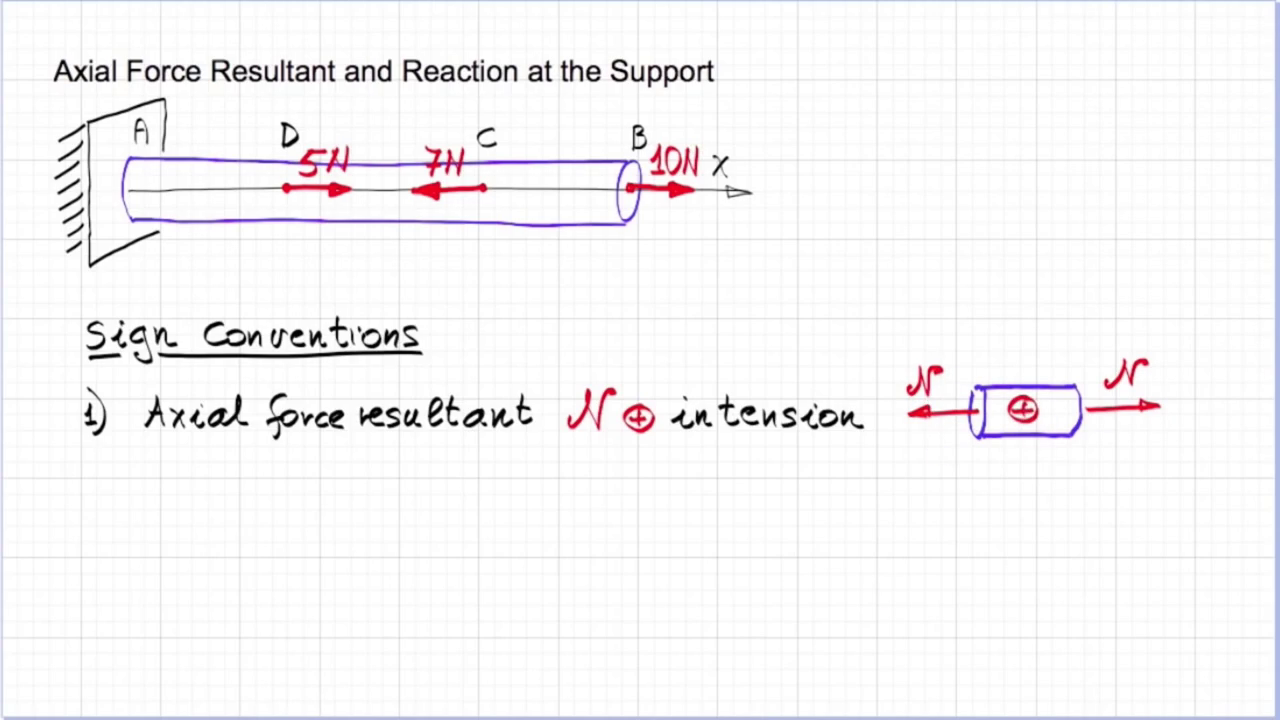 Axial Force Resultant and Reaction at the Support
A D C B
5N 7N 10N X
Sign Conventions
1) Axial force resultant N ⊕ in tension
N ⊕ N